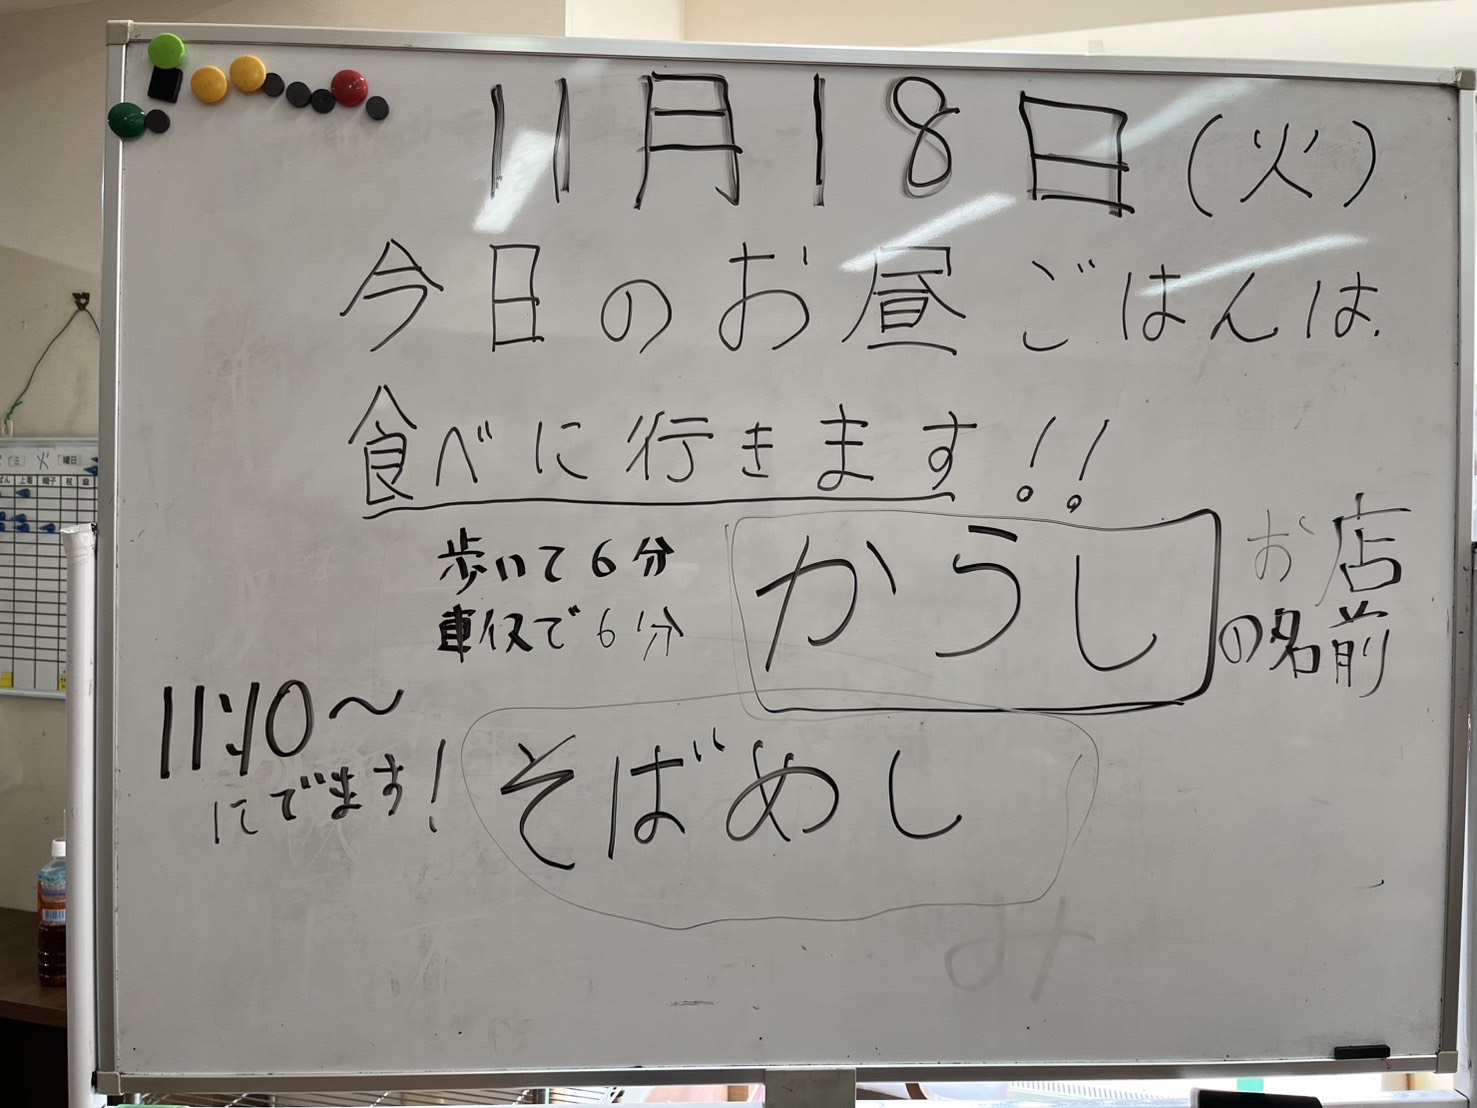 11月18日(火)
今日のお昼ごはんは、
食べに行きます!!
歩いて6分
車イスで6分
からし
お店
の名前
11:10〜
にでます!
そばめし
み
火
曜日
上着
帽子
杖
傘